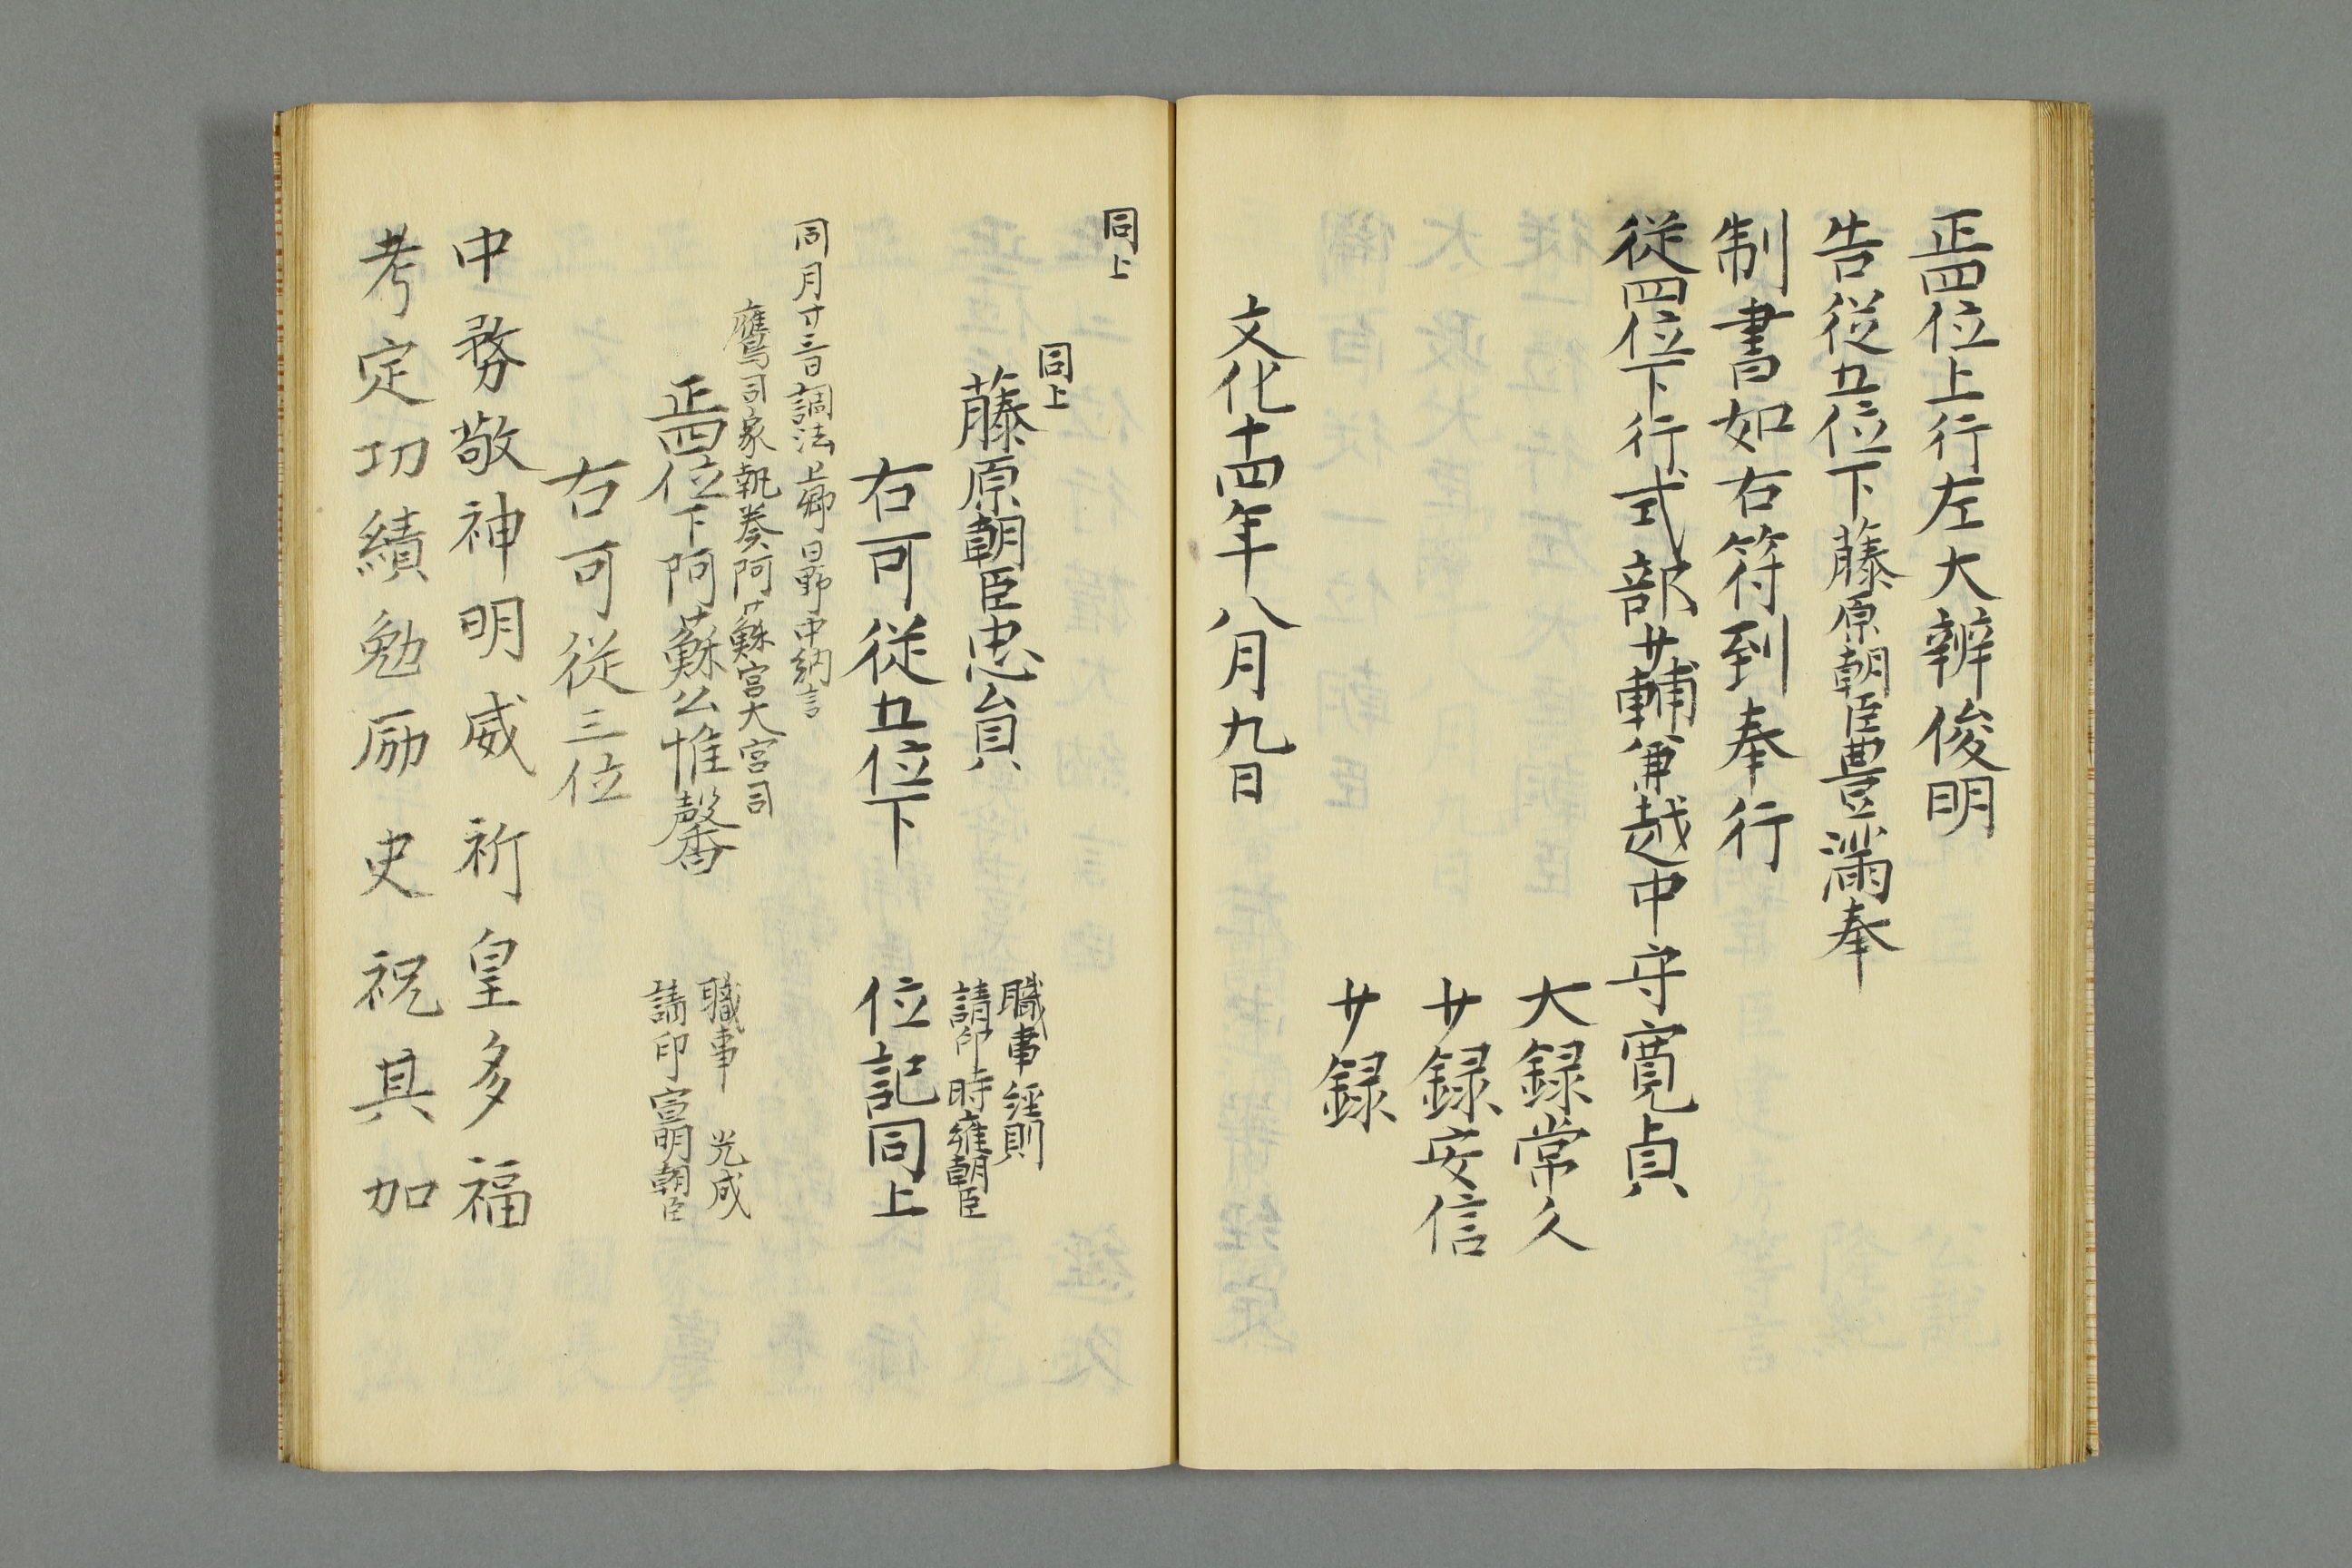 正四位上行左大辨俊明
告從五位下藤原朝臣豊滿奉
制書如右符到奉行
從四位下行式部少輔兼越中守寛貞
大録常久
少録安信
少録
文化十四年八月九日
同上
同上
藤原朝臣忠貟
職事経則
請印時雍朝臣
右可從五位下
位記同上
同月廿三日調法上卿日野中納言
鷹司家執奏阿蘇宮大宮司
正四位下阿蘇公惟馨
職事 光成
請印宣明朝臣
右可從三位
中務敬神明威祈皇多福
考定功績勉励史祝其加